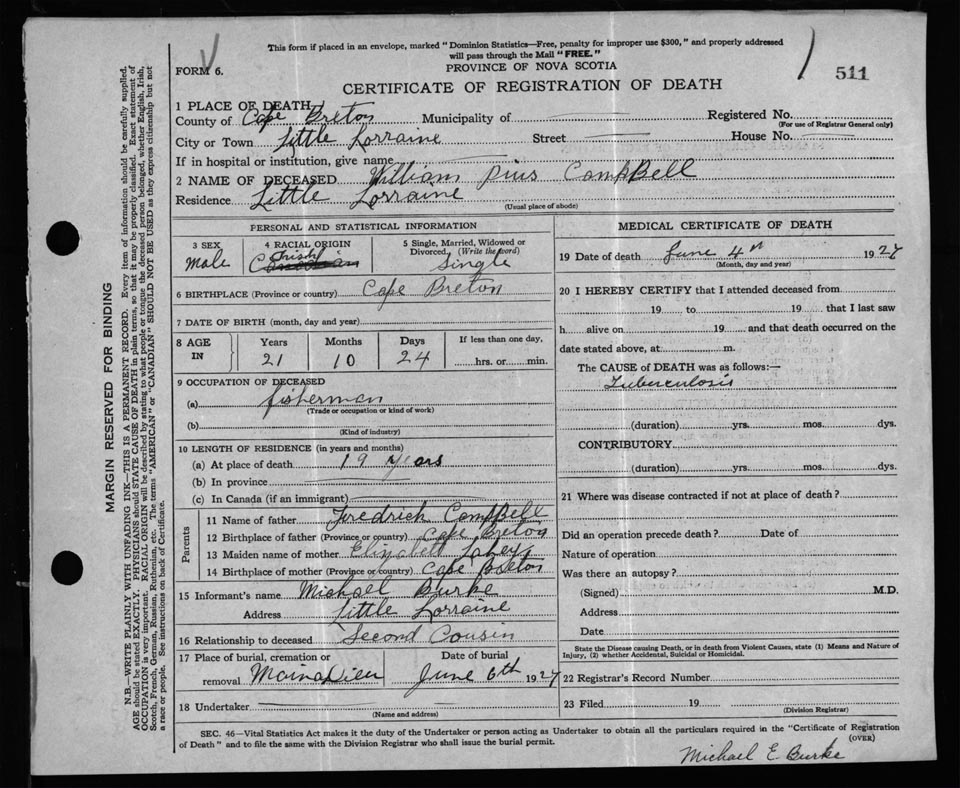 This form if placed in an envelope, marked "Dominion Statistics—Free, penalty for improper use $300," and properly addressed
will pass through the Mail "FREE."
FORM 6.
PROVINCE OF NOVA SCOTIA
511
CERTIFICATE OF REGISTRATION OF DEATH
1 PLACE OF DEATH
County of Cape Breton Municipality of Registered No.
(For use of Registrar General only)
City or Town Little Lorraine Street House No.
If in hospital or institution, give name
2 NAME OF DECEASED William Pius CampBell
Residence Little Lorraine
(Usual place of abode)
PERSONAL AND STATISTICAL INFORMATION
3 SEX
Male
4 RACIAL ORIGIN
Irish
Canadian
5 Single, Married, Widowed or
Divorced, (Write the word)
Single
6 BIRTHPLACE (Province or country) Cape Breton
7 DATE OF BIRTH (month, day and year)
8 AGE
IN
Years Months Days If less than one day,
21 10 24 hrs. or min.
9 OCCUPATION OF DECEASED
(a) fisherman
(Trade or occupation or kind of work)
(b)
(Kind of industry)
10 LENGTH OF RESIDENCE (in years and months)
(a) At place of death 19 years
(b) In province
(c) In Canada (if an immigrant)
Parents
11 Name of father Fredrich CampBell
12 Birthplace of father (Province or country) Cape Breton
13 Maiden name of mother Elizabett Lahey
14 Birthplace of mother (Province or country) Cape Breton
15 Informant's name Michael Burke
Address Little Lorraine
16 Relationship to deceased Second Cousin
17 Place of burial, cremation or
removal MainaDieu
Date of burial
June 6th 1927
18 Undertaker
(Name and address)
MEDICAL CERTIFICATE OF DEATH
19 Date of death June 4th 1927
(Month, day and year)
20 I HEREBY CERTIFY that I attended deceased from
19 to 19 that I last saw
h alive on 19 and that death occurred on the
date stated above, at m.
The CAUSE of DEATH was as follows:—
Tuberculosis
(duration) yrs. mos. dys.
CONTRIBUTORY
(duration) yrs. mos. dys.
21 Where was disease contracted if not at place of death?
Did an operation precede death? Date of
Nature of operation
Was there an autopsy?
(Signed) M.D.
Address
Date
State the Disease causing Death, or in death from Violent Causes, state (1) Means and Nature of
Injury, (2) whether Accidental, Suicidal or Homicidal.
22 Registrar's Record Number
23 Filed 19
(Division Registrar)
SEC. 46—Vital Statistics Act makes it the duty of the Undertaker or person acting as Undertaker to obtain all the particulars required in the "Certificate of Registration
of Death" and to file the same with the Division Registrar who shall issue the burial permit.
(OVER)
Michael E. Burke
MARGIN RESERVED FOR BINDING
N.B.—WRITE PLAINLY WITH UNFADING INK—THIS IS A PERMANENT RECORD. Every item of information should be carefully supplied.
AGE should be stated EXACTLY. PHYSICIANS should STATE CAUSE OF DEATH in plain terms, so that it may be properly classified. Exact statement of
OCCUPATION is very important. RACIAL ORIGIN will be described by stating to what people or tongue the deceased person belonged, whether English, Irish,
Scotch, French, German, Russian, Ruthenian, etc. The terms "AMERICAN" or "CANADIAN" SHOULD NOT BE USED as they express citizenship but not
a race or people. See instructions on back of Certificate.